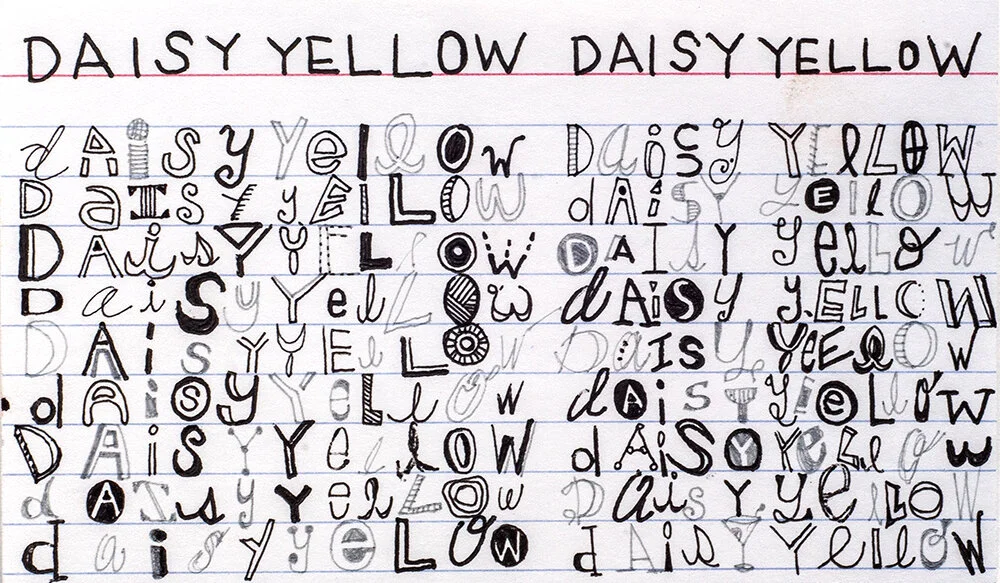 DAISY YELLOW DAISY YELLOW
dAiSy YellOw DaiSy YElLOW
DaISY yElLOw dAiSY yEllOW
DAisY YELlOW DAIsY yelLOw
DaiSy YelLOw dAiSy yELLOW
DAISY YElLOW DaISY YEElOW
dAiSy YeLlOw dAiSY yeLlOW
DAiSY YellOW dAiSOY YeLlOw
dAIsy YelLOw DaisY YelLOW
daisy yeLOW dAisY YellOW